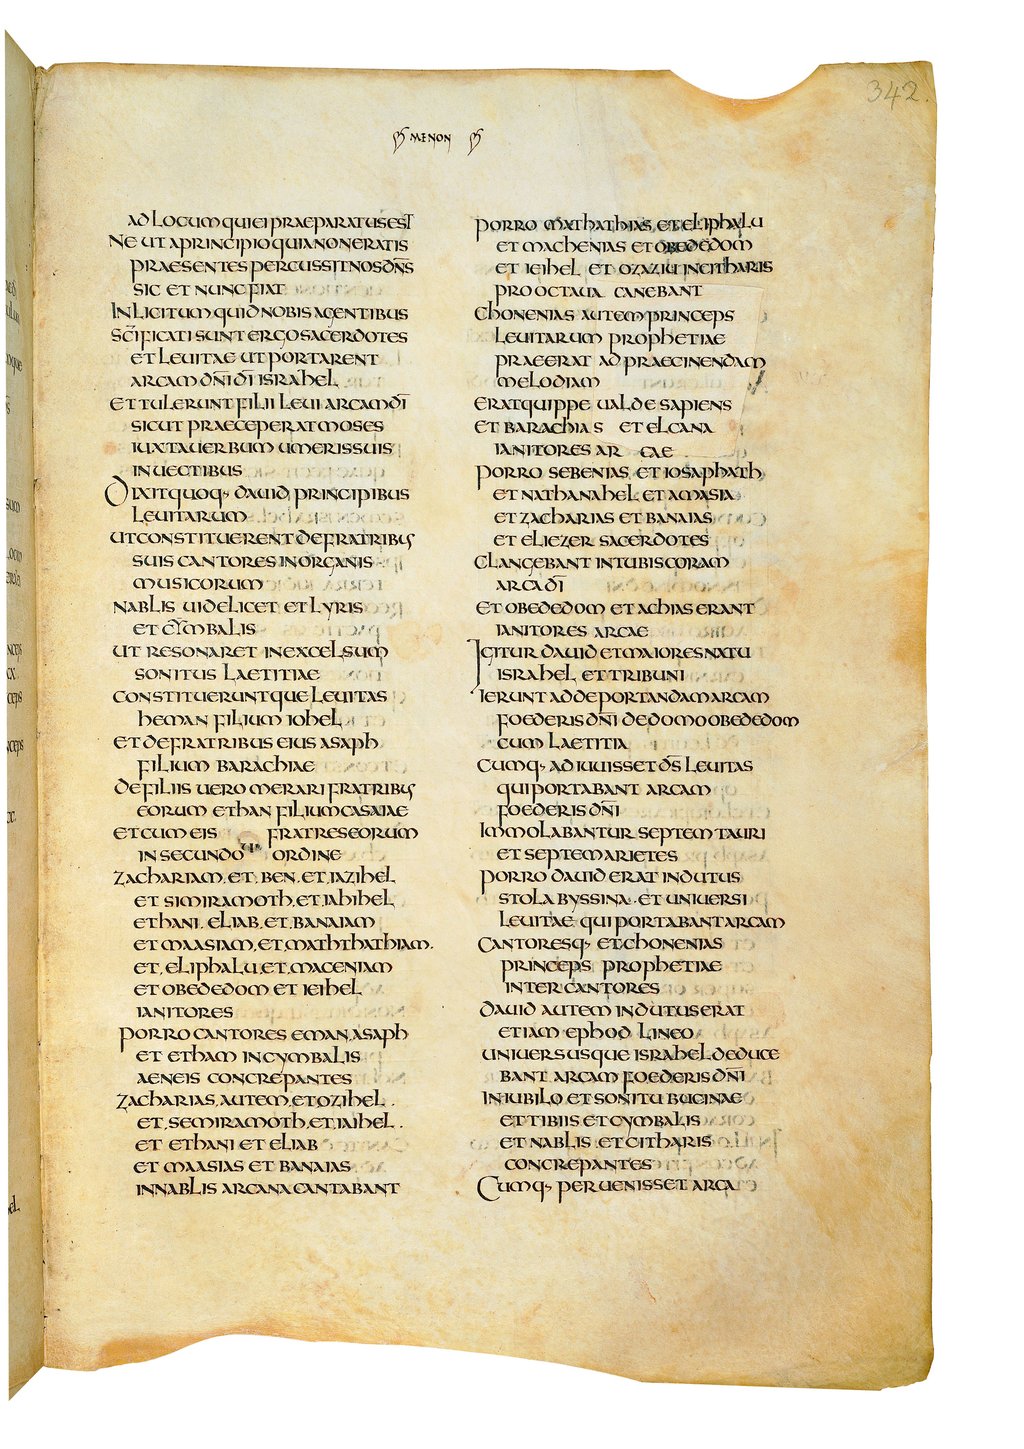 342.
MENON
AD LOCUM QUI EI PRAEPARATUS EST
NE UT A PRINCIPIO QUIA NON ERATIS
PRAESENTES PERCUSSIT NOS DN̄S
SIC ET NUNC FIAT
INLICITUM QUID NOBIS AGENTIBUS
SC̄IFICATI SUNT ERGO SACERDOTES
ET LEUITAE UT PORTARENT
ARCAM DN̄I DĪ ISRAHEL
ET TULERUNT FILII LEUI ARCAM DĪ
SICUT PRAECEPERAT MOSES
IUXTA UERBUM UMERIS SUIS
IN UECTIBUS
DIXIT QUOQ· DAUID PRINCIPIBUS
LEUITARUM
UT CONSTITUERENT DE FRATRIBUS
SUIS CANTORES IN ORGANIS
MUSICORUM
NABLIS UIDELICET ET LYRIS
ET CYMBALIS
UT RESONARET IN EXCELSUM
SONITUS LAETITIAE
CONSTITUERUNTQUE LEUITAS
HEMAN FILIUM IOHEL
ET DE FRATRIBUS EIUS ASAPH
FILIUM BARACHIAE
DE FILIIS UERO MERARI FRATRIBUS
EORUM ETHAN FILIUM CASAIAE
ET CUM EIS FRATRES EORUM
IN SECUNDO ORDINE
ZACHARIAM. ET. BEN. ET. IAZIHEL
ET SIMIRAMOTH. ET. IAHIHEL
ETHANI. ELIAB. ET. BANAIAM
ET MAASIAM. ET. MATHTHATHIAM.
ET. ELIPHALU. ET. MACENIAM
ET OBEDEDOM ET IEIHEL
IANITORES
PORRO CANTORES EMAN. ASAPH
ET ETHAM IN CYMBALIS
AENEIS CONCREPANTES
ZACHARIAS. AUTEM. ET OZIHEL.
ET. SEMIRAMOTH. ET. IAIHEL.
ET ETHANI ET ELIAB
ET MAASIAS ET BANAIAS
IN NABLIS ARCANA CANTABANT
PORRO MATHATHIAS. ET ELIPHALU
ET MACHENIAS ET OBEDEDOM
ET IEIHEL ET OZAZIU IN CITHARIS
PRO OCTAUA CANEBANT
CHONENIAS AUTEM PRINCEPS
LEUITARUM PROPHETIAE
PRAEERAT AD PRAECINENDAM
MELODIAM
ERAT QUIPPE UALDE SAPIENS
ET BARACHIAS ET ELCANA
IANITORES ARCAE
PORRO SEBENIAS ET IOSAPHATH
ET NATHANAHEL ET AMASIA
ET ZACHARIAS ET BANAIAS
ET ELIEZER SACERDOTES
CLANGEBANT IN TUBIS CORAM
ARCA DĪ
ET OBEDEDOM ET ACHIAS ERANT
IANITORES ARCAE
IGITUR DAUID ET MAIORES NATU
ISRAHEL ET TRIBUNI
IERUNT AD DEPORTANDAM ARCAM
FOEDERIS DN̄I DE DOMO OBEDEDOM
CUM LAETITIA
CUMQ· ADIUUISSET DS̄ LEUITAS
QUI PORTABANT ARCAM
FOEDERIS DN̄I
IMMOLABANTUR SEPTEM TAURI
ET SEPTEM ARIETES
PORRO DAUID ERAT INDUTUS
STOLA BYSSINA. ET UNIUERSI
LEUITAE QUI PORTABANT ARCAM
CANTORESQ· ET CHONENIAS
PRINCEPS PROPHETIAE
INTER CANTORES
DAUID AUTEM INDUTUS ERAT
ETIAM EPHOD LINEO
UNIUERSUSQUE ISRAHEL DEDUCE
BANT ARCAM FOEDERIS DN̄I
IN IUBILO ET SONITU BUCINAE
ET TIBIIS ET CYMBALIS
ET NABLIS ET CITHARIS
CONCREPANTES
CUMQ· PERUENISSET ARCA